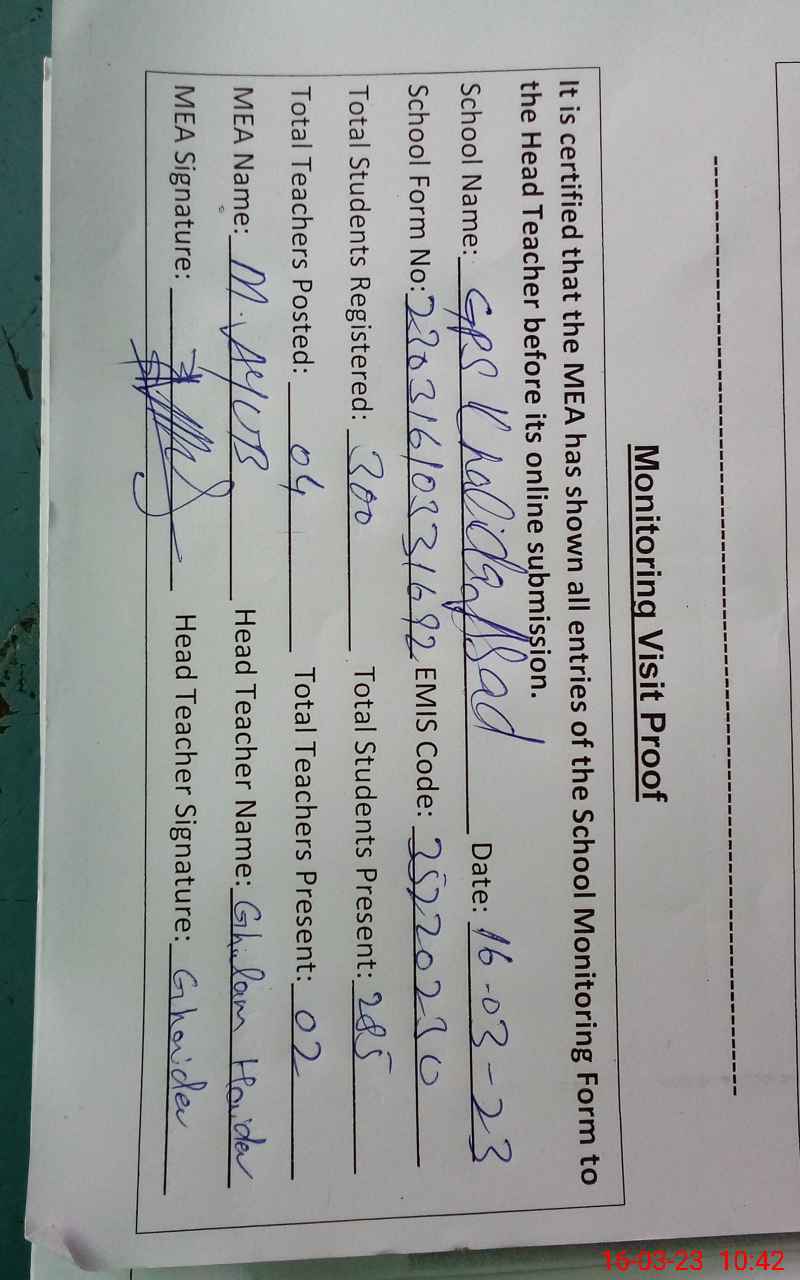 Monitoring Visit Proof
It is certified that the MEA has shown all entries of the School Monitoring Form to
the Head Teacher before its online submission.
School Name: GPS Khalidabad Date: 16-03-23
School Form No: EMIS Code:
Total Students Registered: 300 Total Students Present: 285
Total Teachers Posted: 04 Total Teachers Present: 02
MEA Name: M. AYUB Head Teacher Name: Ghulam Haider
MEA Signature: Head Teacher Signature: Ghaider
16-03-23 10:42